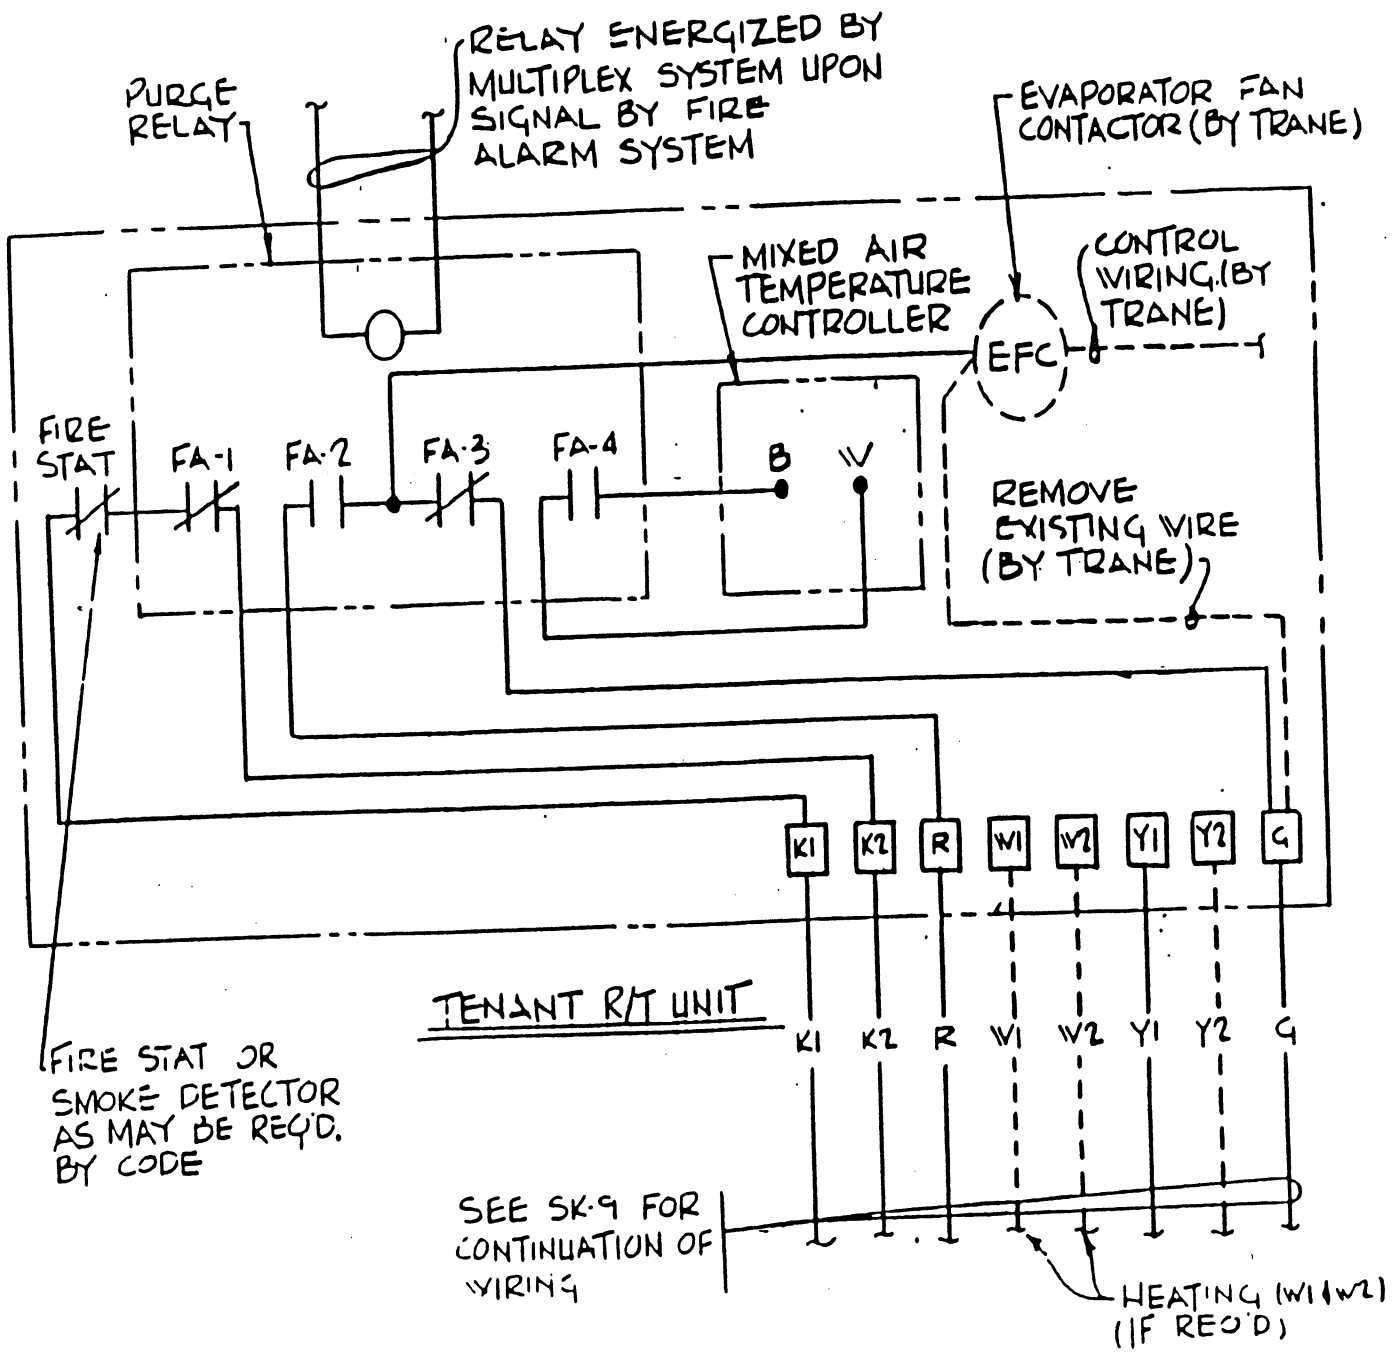 RELAY ENERGIZED BY
MULTIPLEX SYSTEM UPON
SIGNAL BY FIRE
ALARM SYSTEM
PURGE
RELAY
EVAPORATOR FAN
CONTACTOR (BY TRANE)
MIXED AIR
TEMPERATURE
CONTROLLER
CONTROL
WIRING.(BY
TRANE)
EFC
FIRE
STAT
FA-1
FA-2
FA-3
FA-4
B
W
REMOVE
EXISTING WIRE
(BY TRANE)
K1
K2
R
W1
W2
Y1
Y2
G
TENANT R/T UNIT
K1
K2
R
W1
W2
Y1
Y2
G
FIRE STAT OR
SMOKE DETECTOR
AS MAY BE REQ'D.
BY CODE
SEE SK-9 FOR
CONTINUATION OF
WIRING
HEATING (W1&W2)
(IF REQ'D)